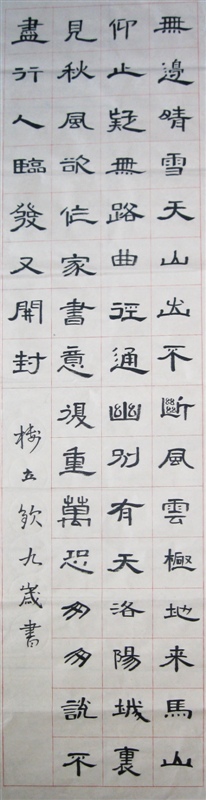 無邊晴雪天山出不斷風雲極地来馬山
仰止疑無路曲徑通幽別有天洛陽城裏
見秋風欲作家書意復重萬恐匆匆說不
盡行人臨發又開封
欽九歲書